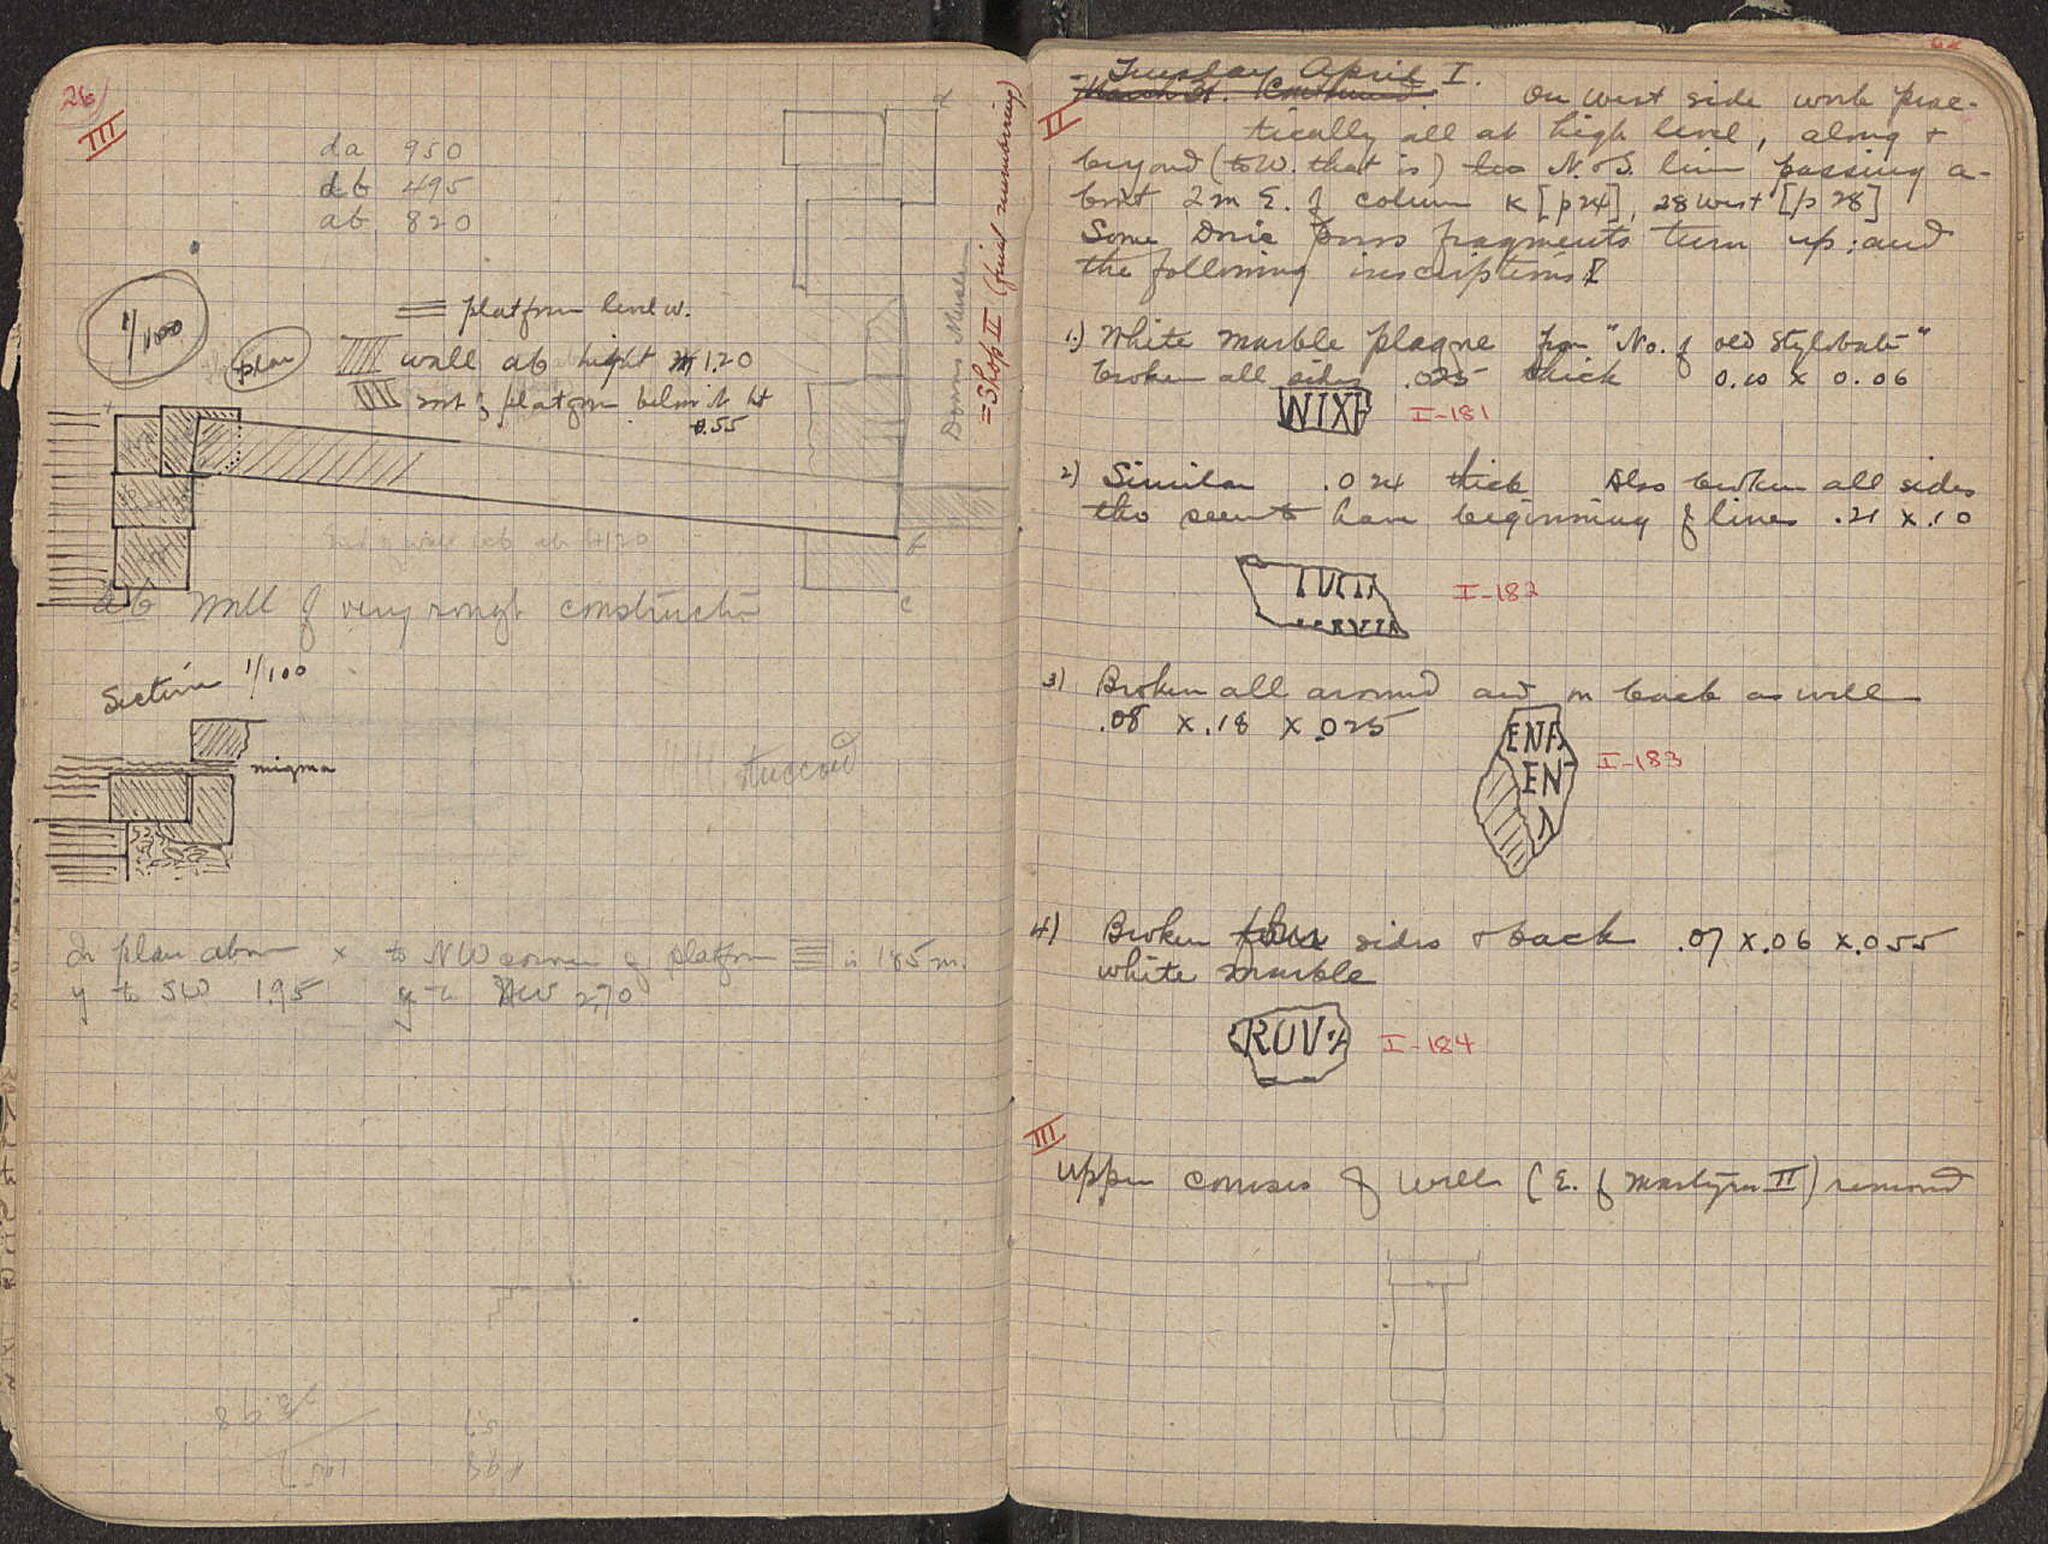 26
III
da 950
db 495
ab 820
1/100
plan
platform level w.
wall ab height 1.20
platform below it ht
0.55
Domus Museum
= Shop II (final numbering)
ab wall of very rough construction
Section 1/100
migma
stuccoed
In plan above x to NW corner of platform is 1.85 m.
y to SW 1.95 y to NW 2.70
Tuesday April I.
March 31. Continued.
II
On west side work prac-
tically all at high level, along +
beyond (to W. that is) N. & S. line passing a-
bout 2 m E. of column K [p 24], 28 West [p 28]
Some Doric poros fragments turn up; and
the following inscriptions:
1.) White marble plaque from "No. of old Stylobate"
broken all sides .025 thick 0.10 x 0.06
NIXF
I-181
2) Similar .024 thick Also broken all sides
tho seems to have beginning of lines .21 x .10
I-182
3) Broken all around and on back as well
.08 x .18 x .025
EN
I-183
4) Broken four sides & back .07 x .06 x .055
white marble
ROV
I-184
III
Upper courses of well (E. of Martyra II) removed